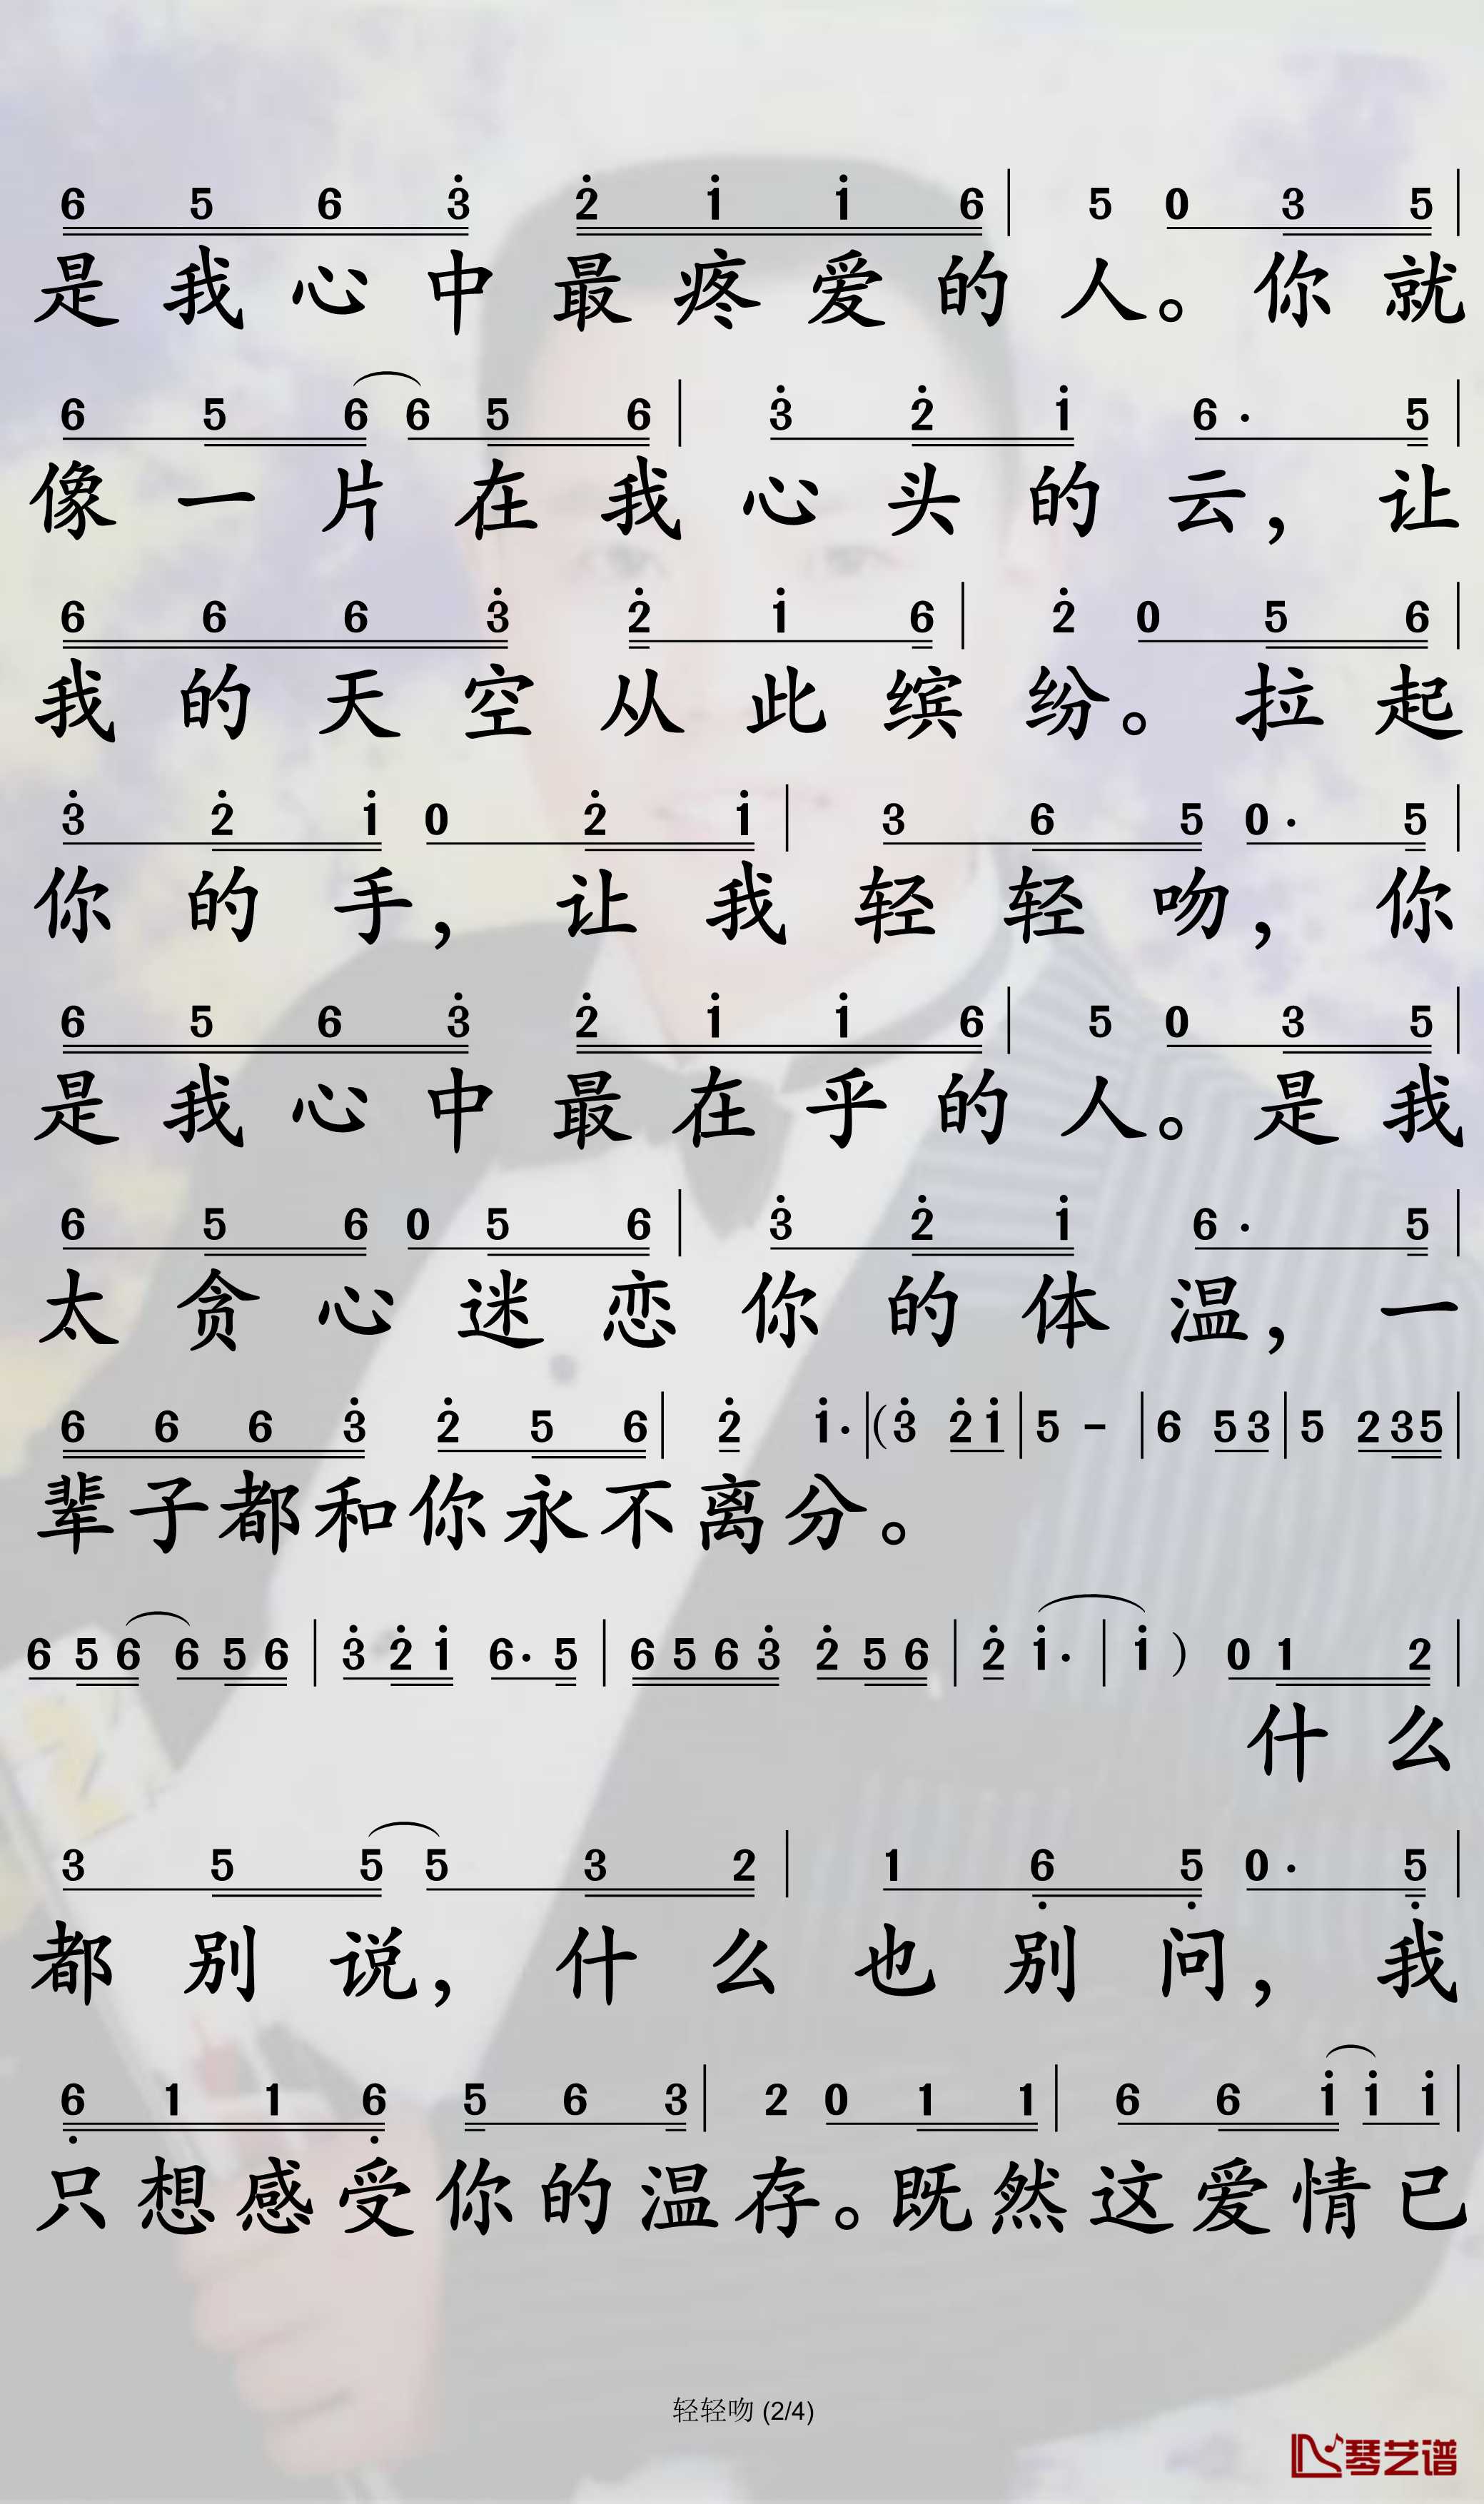 6 5 6 3̇ 2̇ 1̇ 1̇ 6 | 5 0 3 5 |
是我心中最疼爱的人。你就
6 5 6 6 5 6 | 3̇ 2̇ 1̇ 6· 5 |
像一片在我心头的云，让
6 6 6 3̇ 2̇ 1̇ 6 | 2̇ 0 5 6 |
我的天空从此缤纷。拉起
3̇ 2̇ 1̇ 0 2̇ 1̇ | 3 6 5 0· 5 |
你的手，让我轻轻吻，你
6 5 6 3̇ 2̇ 1̇ 1̇ 6 | 5 0 3 5 |
是我心中最在乎的人。是我
6 5 6 0 5 6 | 3̇ 2̇ 1̇ 6· 5 |
太贪心迷恋你的体温，一
6 6 6 3̇ 2̇ 5 6 | 2̇ 1̇· | (3̇ 2̇ 1̇ | 5 - | 6 5 3 | 5 2 3 5 |
辈子都和你永不离分。
6 5 6 6 5 6 | 3̇ 2̇ 1̇ 6· 5 | 6 5 6 3̇ 2̇ 5 6 | 2̇ 1̇· | 1̇ ) 0 1 2 |
什么
3 5 5 5 3 2 | 1 6̣ 5̣ 0· 5̣ |
都别说，什么也别问，我
6̣ 1 1 6̣ 5 6 3 | 2 0 1 1 | 6 6 1̇ 1̇ 1̇ |
只想感受你的温存。既然这爱情已
轻轻吻 (2/4)
琴艺谱